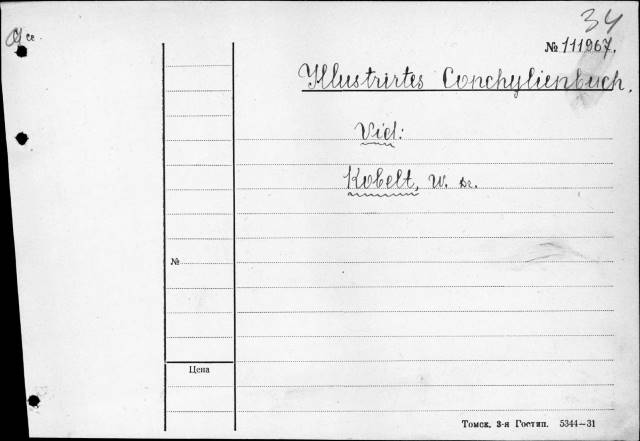 34
№ 111967.
Illustrirtes Conchylienbuch.
Vid:
Kobelt, W. Dr.
№
Цена
Томск. 3-я Гостип. 5344—31